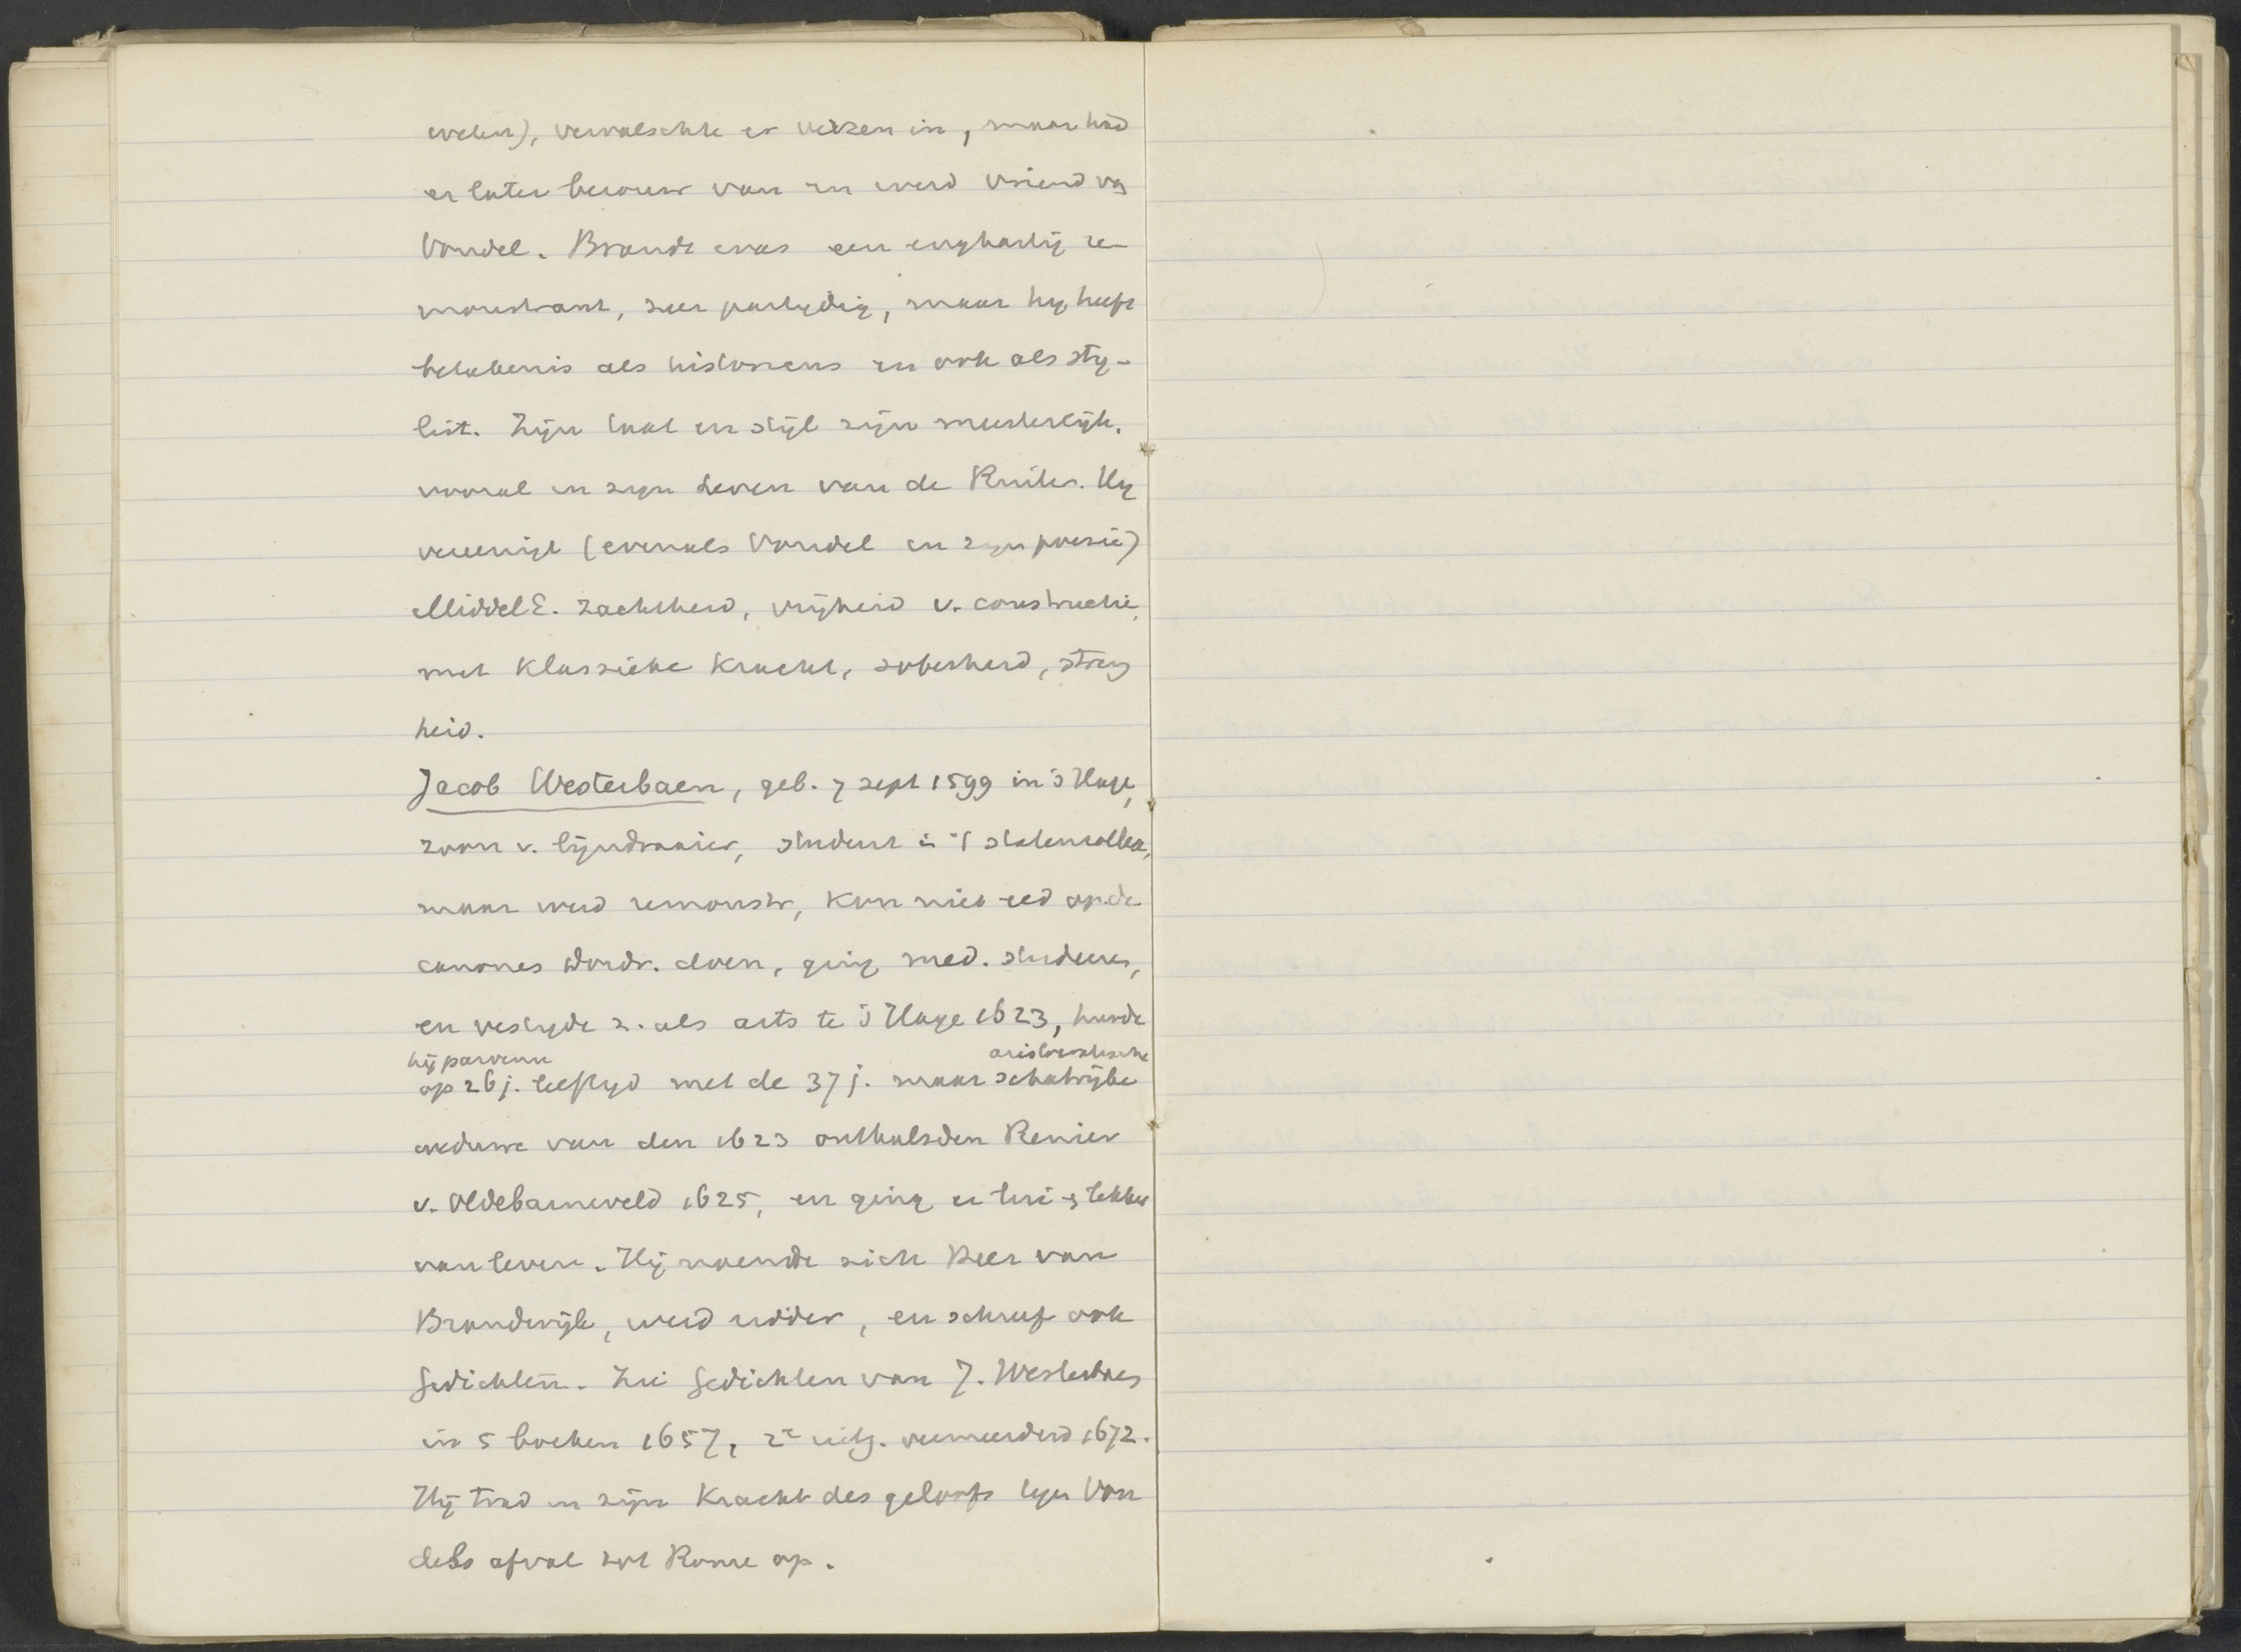 weten), vervalschte er verzen in, maar had
er later berouw van en werd vriend van
Vondel. Brandt was een enghartig re-
monstrant, zeer partijdig, maar hy heeft
beteekenis als historicus en ook als sty-
list. Zijn taal en stijl zijn meesterlijk,
vooral in zijn Leven van de Ruiter. Hy
vereenigt (evenals Vondel in zyn poesie)
MiddelE. zachtheid, vrijheid v. constructie,
met klassieke kracht, soberheid, streng
heid.
Jacob Westerbaen, geb. 7 sept 1599 in 's Hage,
zoon v. lijndraaier, student in 't statencollege,
maar werd remonstr, kon niet eed op de
canones Dordr. doen, ging med. studeeren,
en vestigde z. als arts te 's Hage 1623, huwde
hij parvenu aristocratische
op 26 j. leeftyd met de 37 j. maar schatrijke
weduwe van den 1623 onthalsden Renier
v. Oldebarneveld 1625, en ging er lekker
van leven. Hij noemde zich Heer van
Brandwijk, werd ridder, en schreef ook
Gedichten. Zie Gedichten van J. Westerbaen
in 5 boeken 1657, 2e uitg. vermeerderd 1672.
Hij trad in zijn Kracht des geloofs tegen Von
dels afval tot Rome op.